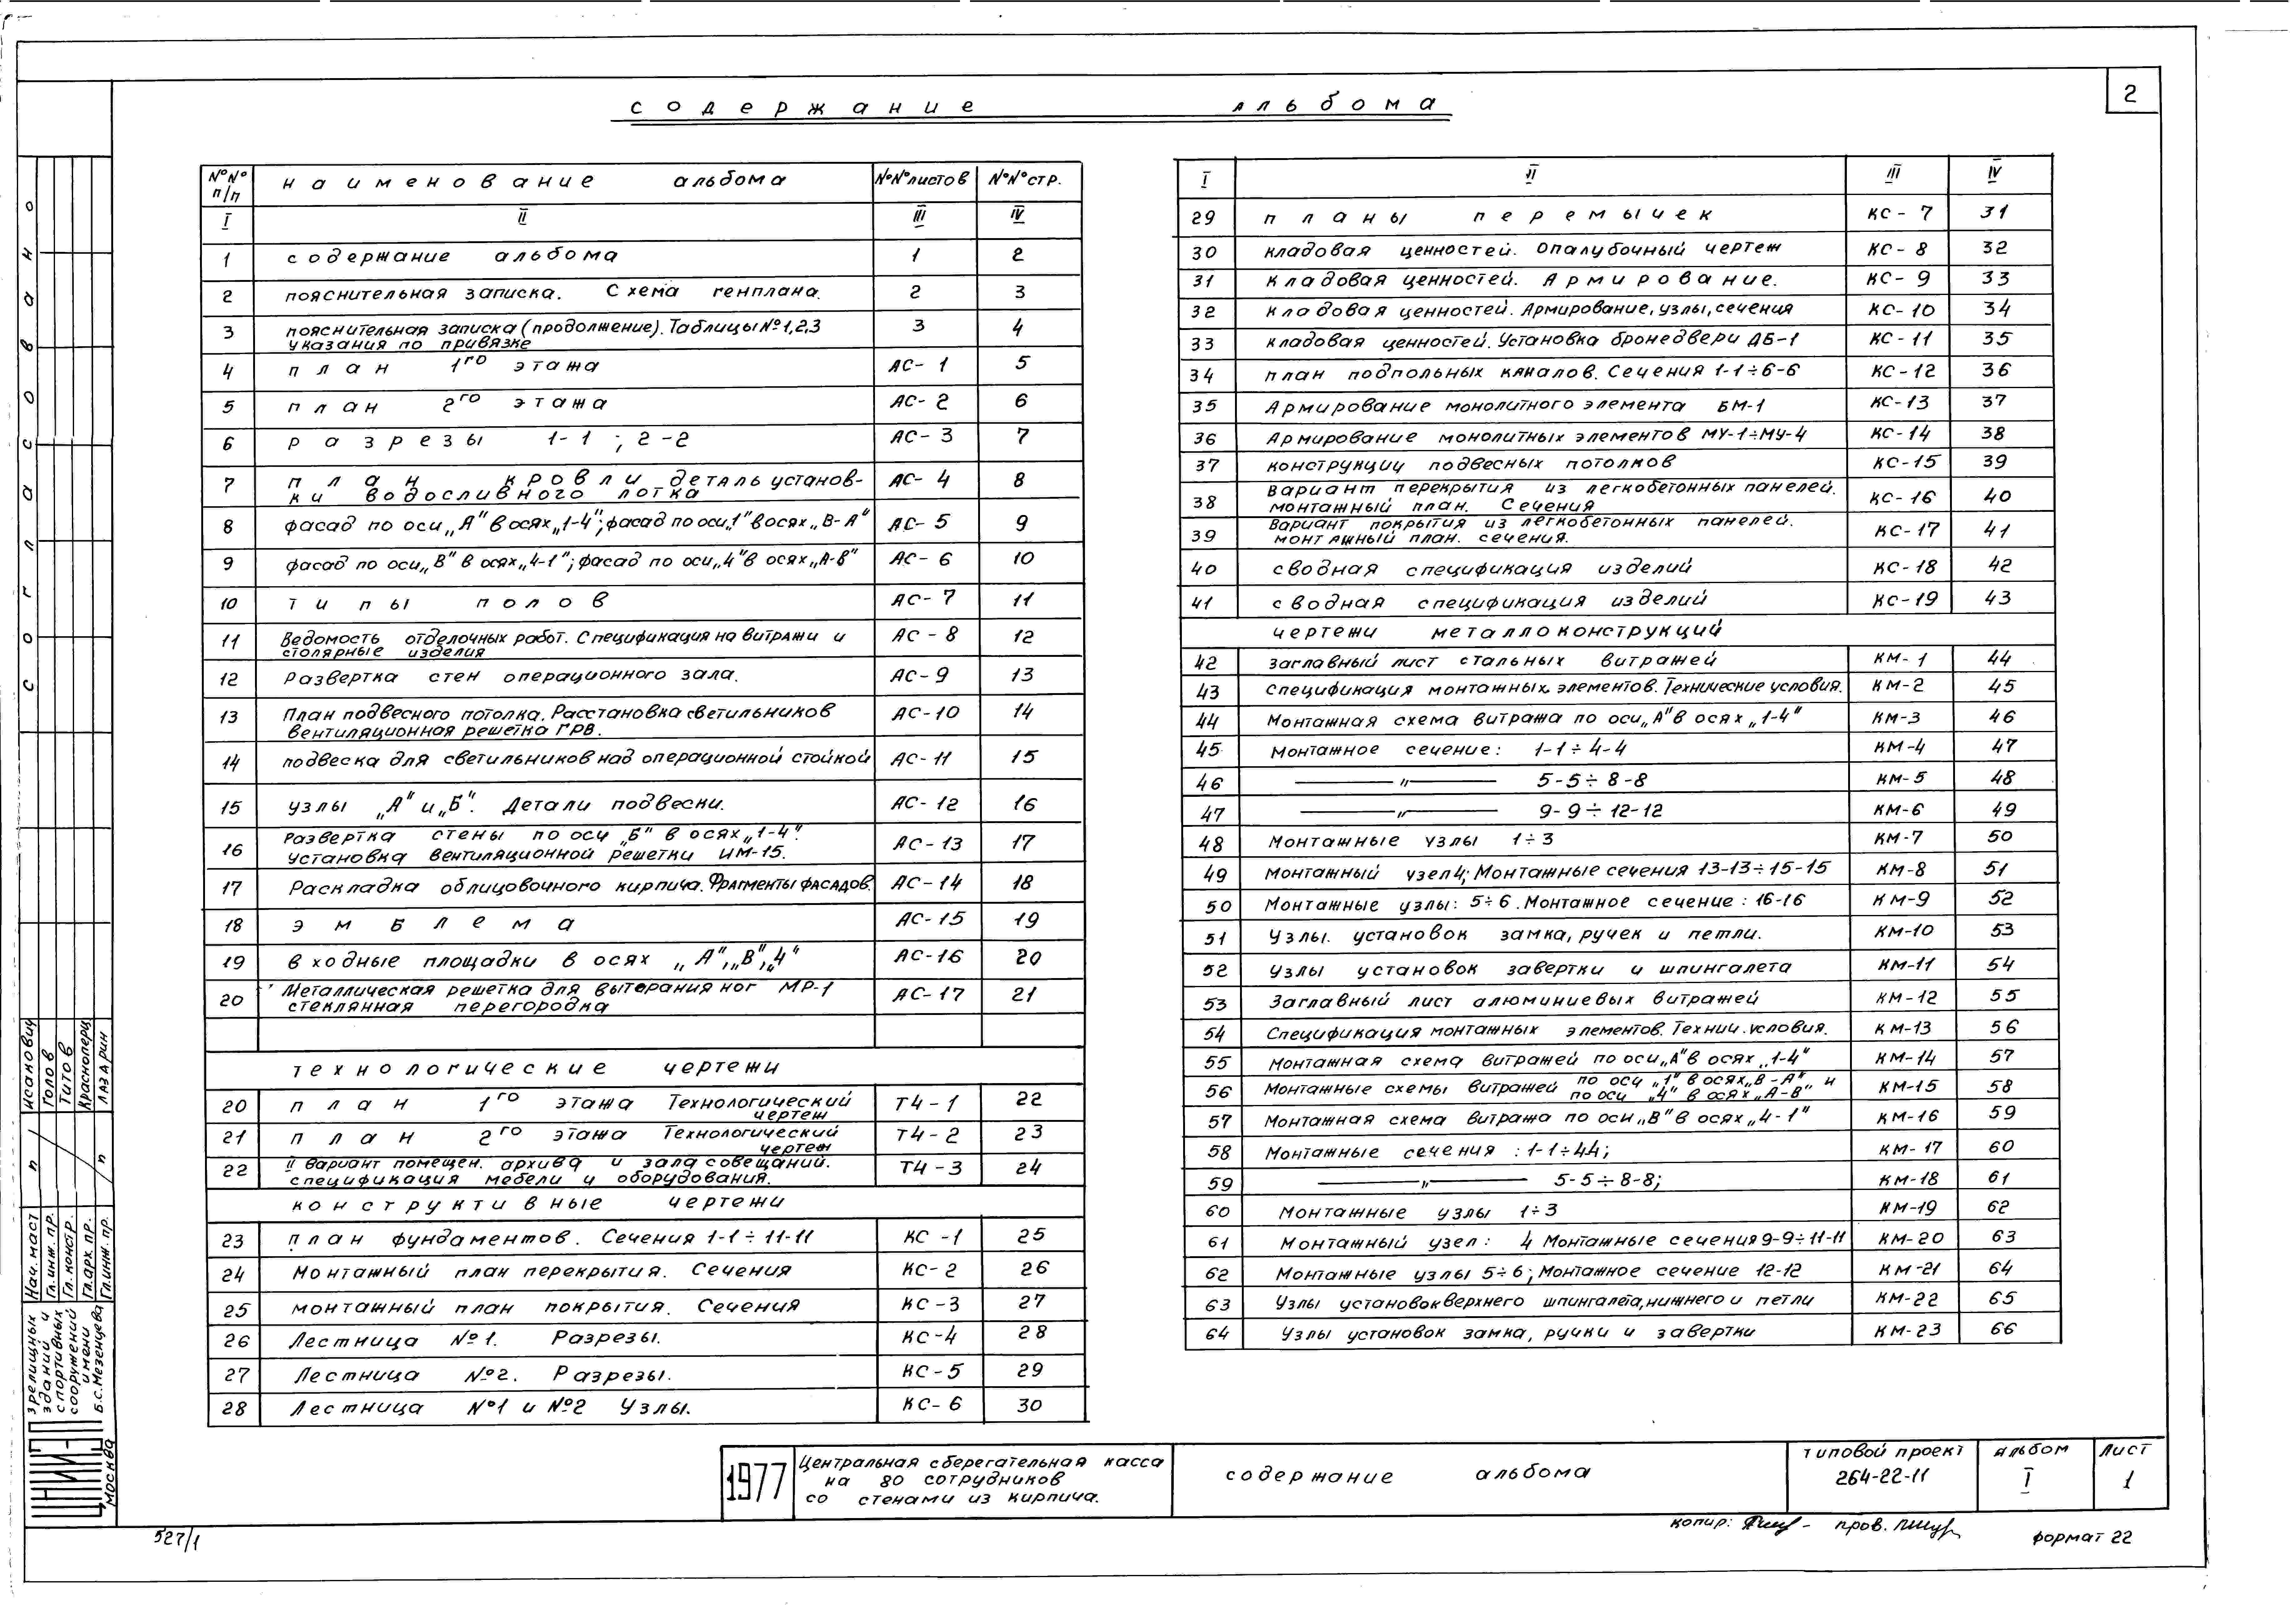 2
содержание альбома
№№ п/п наименование альбома №№ листов №№ стр.
I II III IV
1 содержание альбома 1 2
2 пояснительная записка. Схема генплана. 2 3
3 пояснительная записка (продолжение). Таблицы №1,2,3 3 4
указания по привязке
4 план 1го этажа АС-1 5
5 план 2го этажа АС-2 6
6 разрезы 1-1; 2-2 АС-3 7
7 план кровли деталь установ- АС-4 8
ки водосливного лотка
8 фасад по оси „А" в осях „1-4"; фасад по оси „1" в осях „В-А" АС-5 9
9 фасад по оси „В" в осях „4-1"; фасад по оси „4" в осях „А-В" АС-6 10
10 типы полов АС-7 11
11 Ведомость отделочных работ. Спецификация на витражи и АС-8 12
столярные изделия
12 Развертка стен операционного зала. АС-9 13
13 План подвесного потолка. Расстановка светильников АС-10 14
вентиляционная решетка ГРВ.
14 подвеска для светильников над операционной стойкой АС-11 15
15 узлы „А" и „Б". Детали подвески. АС-12 16
16 Развертка стены по оси „Б" в осях „1-4". АС-13 17
установка вентиляционной решетки ИМ-15.
17 Раскладка облицовочного кирпича. Фрагменты фасадов. АС-14 18
18 эмблема АС-15 19
19 входные площадки в осях „А", „В", „4" АС-16 20
20 Металлическая решетка для вытерания ног МР-1 АС-17 21
стеклянная перегородка
технологические чертежи
20 план 1го этажа Технологический Т4-1 22
чертеж
21 план 2го этажа Технологический Т4-2 23
чертеж
22 II вариант помещен. архива и зала совещаний. Т4-3 24
спецификация мебели и оборудования.
конструктивные чертежи
23 план фундаментов. Сечения 1-1÷11-11 КС-1 25
24 Монтажный план перекрытия. Сечения КС-2 26
25 монтажный план покрытия. Сечения КС-3 27
26 Лестница №1. Разрезы. КС-4 28
27 Лестница №2. Разрезы. КС-5 29
28 Лестница №1 и №2 Узлы. КС-6 30
I II III IV
29 планы перемычек КС-7 31
30 кладовая ценностей. Опалубочный чертеж КС-8 32
31 кладовая ценностей. Армирование. КС-9 33
32 кладовая ценностей. Армирование, узлы, сечения КС-10 34
33 кладовая ценностей. Установка бронедвери ДБ-1 КС-11 35
34 план подпольных каналов. Сечения 1-1÷6-6 КС-12 36
35 Армирование монолитного элемента БМ-1 КС-13 37
36 Армирование монолитных элементов МУ-1÷МУ-4 КС-14 38
37 конструкции подвесных потолков КС-15 39
38 Вариант перекрытия из легкобетонных панелей. КС-16 40
монтажный план. Сечения
39 Вариант покрытия из легкобетонных панелей. КС-17 41
монтажный план. сечения.
40 сводная спецификация изделий КС-18 42
41 сводная спецификация изделий КС-19 43
чертежи металлоконструкций
42 заглавный лист стальных витражей КМ-1 44
43 Спецификация монтажных элементов. Технические условия. КМ-2 45
44 Монтажная схема витража по оси „А" в осях „1-4" КМ-3 46
45 монтажное сечение: 1-1÷4-4 КМ-4 47
46 —„— 5-5÷8-8 КМ-5 48
47 —„— 9-9÷12-12 КМ-6 49
48 Монтажные узлы 1÷3 КМ-7 50
49 Монтажный узел 4; Монтажные сечения 13-13÷15-15 КМ-8 51
50 Монтажные узлы: 5÷6. Монтажное сечение: 16-16 КМ-9 52
51 Узлы. установок замка, ручек и петли. КМ-10 53
52 Узлы установок завертки и шпингалета КМ-11 54
53 Заглавный лист алюминиевых витражей КМ-12 55
54 Спецификация монтажных элементов. Технич. условия. КМ-13 56
55 Монтажная схема витражей по оси „А" в осях „1-4" КМ-14 57
56 Монтажные схемы витражей по оси „1" в осях „В-А" и КМ-15 58
по оси „4" в осях „А-В"
57 Монтажная схема витража по оси „В" в осях „4-1" КМ-16 59
58 Монтажные сечения: 1-1÷44; КМ-17 60
59 —„— 5-5÷8-8; КМ-18 61
60 Монтажные узлы 1÷3 КМ-19 62
61 Монтажный узел: 4 Монтажные сечения 9-9÷11-11 КМ-20 63
62 Монтажные узлы 5÷6; Монтажное сечение 12-12 КМ-21 64
63 Узлы установок верхнего шпингалета, нижнего и петли КМ-22 65
64 Узлы установок замка, ручки и завертки КМ-23 66
согласовано
Нач. маст Исакович
Гл. инж. пр. Голов
Гл. констр. Титов
Гл. арх. пр. Красноперц
Гл. инж. пр. Лазарин
ЦНИИЭП
зрелищных
зданий и
спортивных
сооружений
имени
Б.С. Мезенцева
Москва
1977
Центральная сберегательная касса
на 80 сотрудников
со стенами из кирпича.
содержание альбома
типовой проект
264-22-11
альбом
I
лист
1
527/1
копир: пров.
формат 22